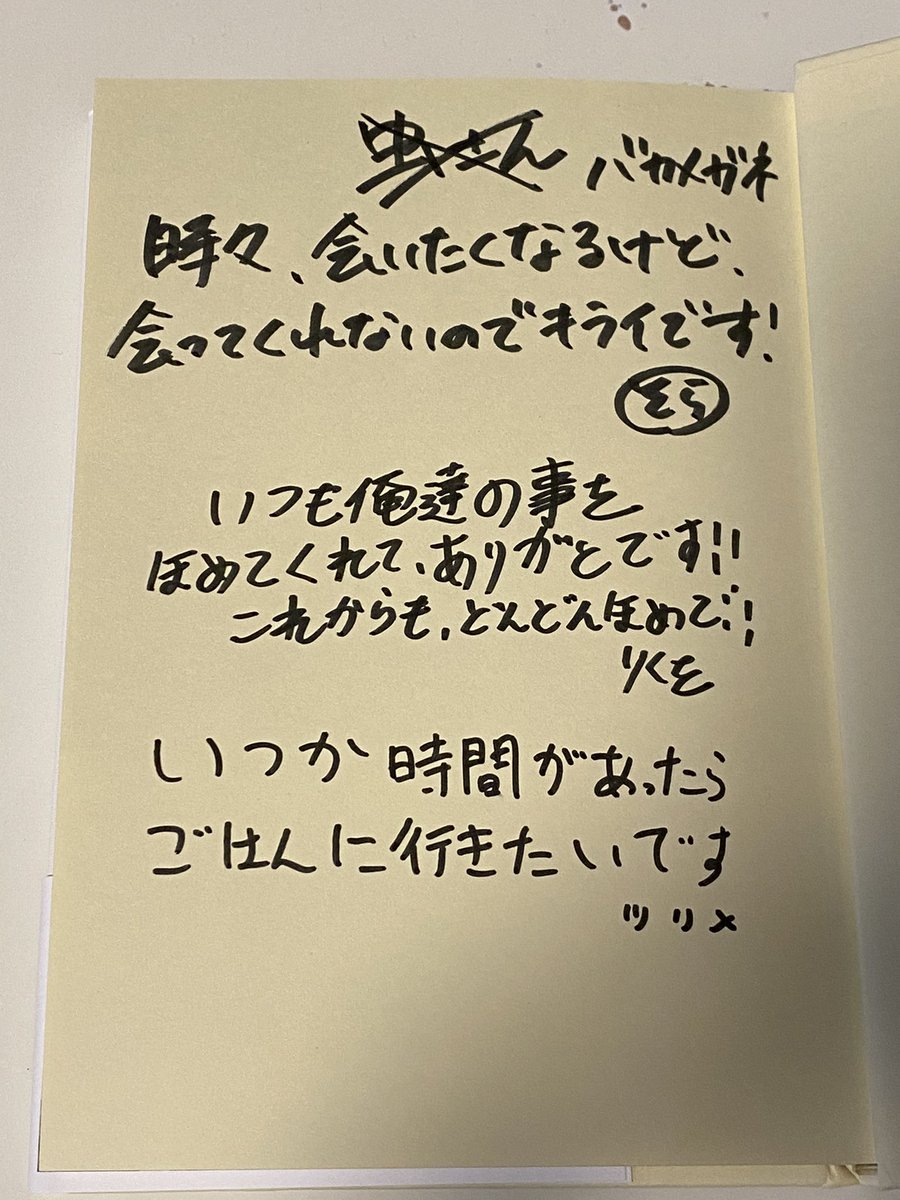 虫さん バカメガネ
時々、会いたくなるけど、
会ってくれないのでキライです!
そら
いつも俺達の事を
ほめてくれて、ありがとです!!
これからも、どんどんほめて!!
りくを
いつか時間があったら
ごはんに行きたいです
ツリメ